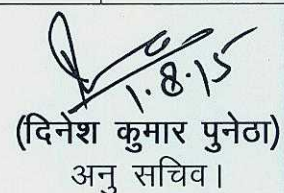 1.8.15
(दिनेश कुमार पुनेठा)
अनु सचिव।